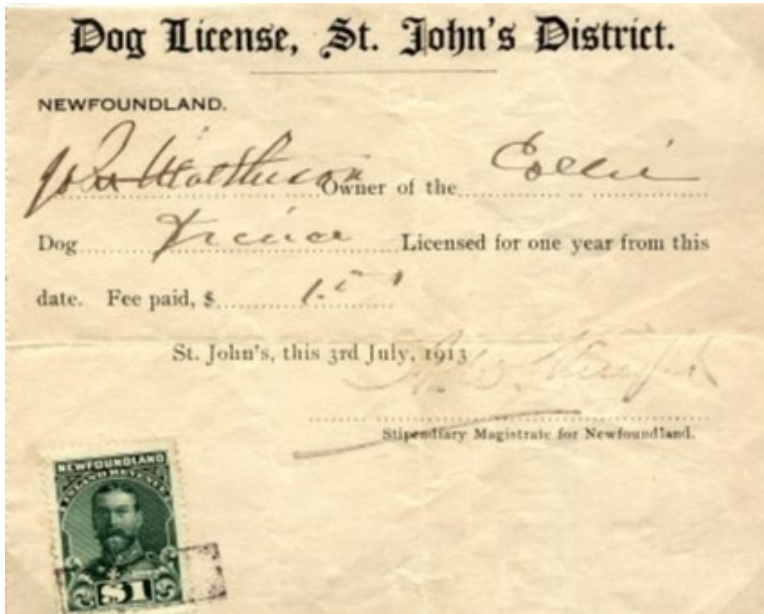 Dog License, St. John's District.
NEWFOUNDLAND.
Owner of the Collie
Dog Prince Licensed for one year from this
date. Fee paid, $
St. John's, this 3rd July, 1913
Stipendiary Magistrate for Newfoundland.
NEWFOUNDLAND
INLAND REVENUE
$1